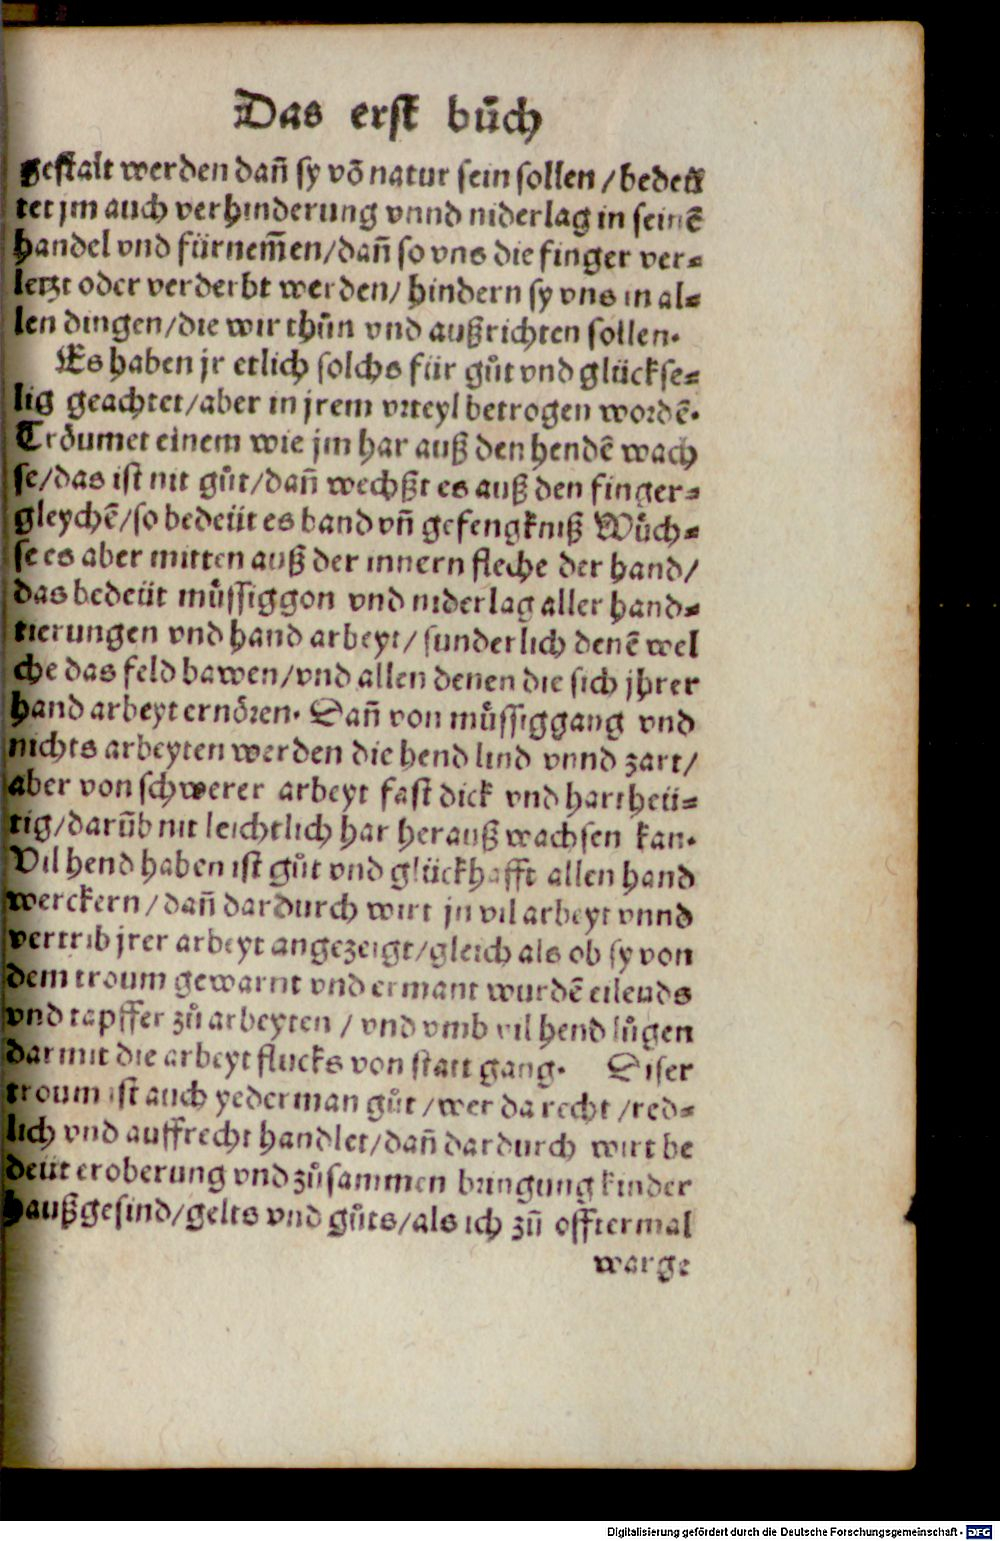 Das erst bůch
gestalt werden dañ sy võ natur sein sollen / bedeü
tet jm auch verhinderung vnnd niderlag in seinẽ
handel vnd fürnem̃en/dañ so vns die finger ver⸗
letzt oder verderbt werden/ hindern sy vns in al⸗
len dingen/die wir thůn vnd außrichten sollen.
Es haben jr etlich solchs für gůt vnd glückse⸗
lig geachtet/aber in jrem vrteyl betrogen wordẽ.
Trǒumet einem wie jm har auß den hendẽ wach
se/das ist nit gůt/dañ wechßt es auß den finger⸗
gleychẽ/so bedeüt es band vñ gefengkniß Wůch⸗
se es aber mitten auß der innern fleche der hand/
das bedeüt můssiggon vnd niderlag aller hand⸗
tierungen vnd hand arbeyt/ sunderlich denẽ wel
che das feld bawen/vnd allen denen die sich jhrer
hand arbeyt ernören. Dañ von můssiggang vnd
nichts arbeyten werden die hend lind vnnd zart/
aber von schwerer arbeyt fast dick vnd hartheü⸗
tig/darüb nit leichtlich har herauß wachsen kan.
Vil hend haben ist gůt vnd glückhafft allen hand
werckern / dañ dardurch wirt jn vil arbeyt vnnd
vertrib jrer arbeyt angezeigt/gleich als ob sy von
dem troum gewarnt vnd ermant wurdẽ eilends
vnd tapffer zů arbeyten / vnd vmb vil hend lůgen
darmit die arbeyt flucks von statt gang. Diser
troum ist auch yederman gůt /wer da recht /red⸗
lich vnd auffrecht handlet/dañ dardurch wirt be
deüt eroberung vnd zůsammen bringung kinder
haußgesind/gelts vnd gůts/als ich zů offtermal
warge
Digitalisierung gefördert durch die Deutsche Forschungsgemeinschaft - DFG